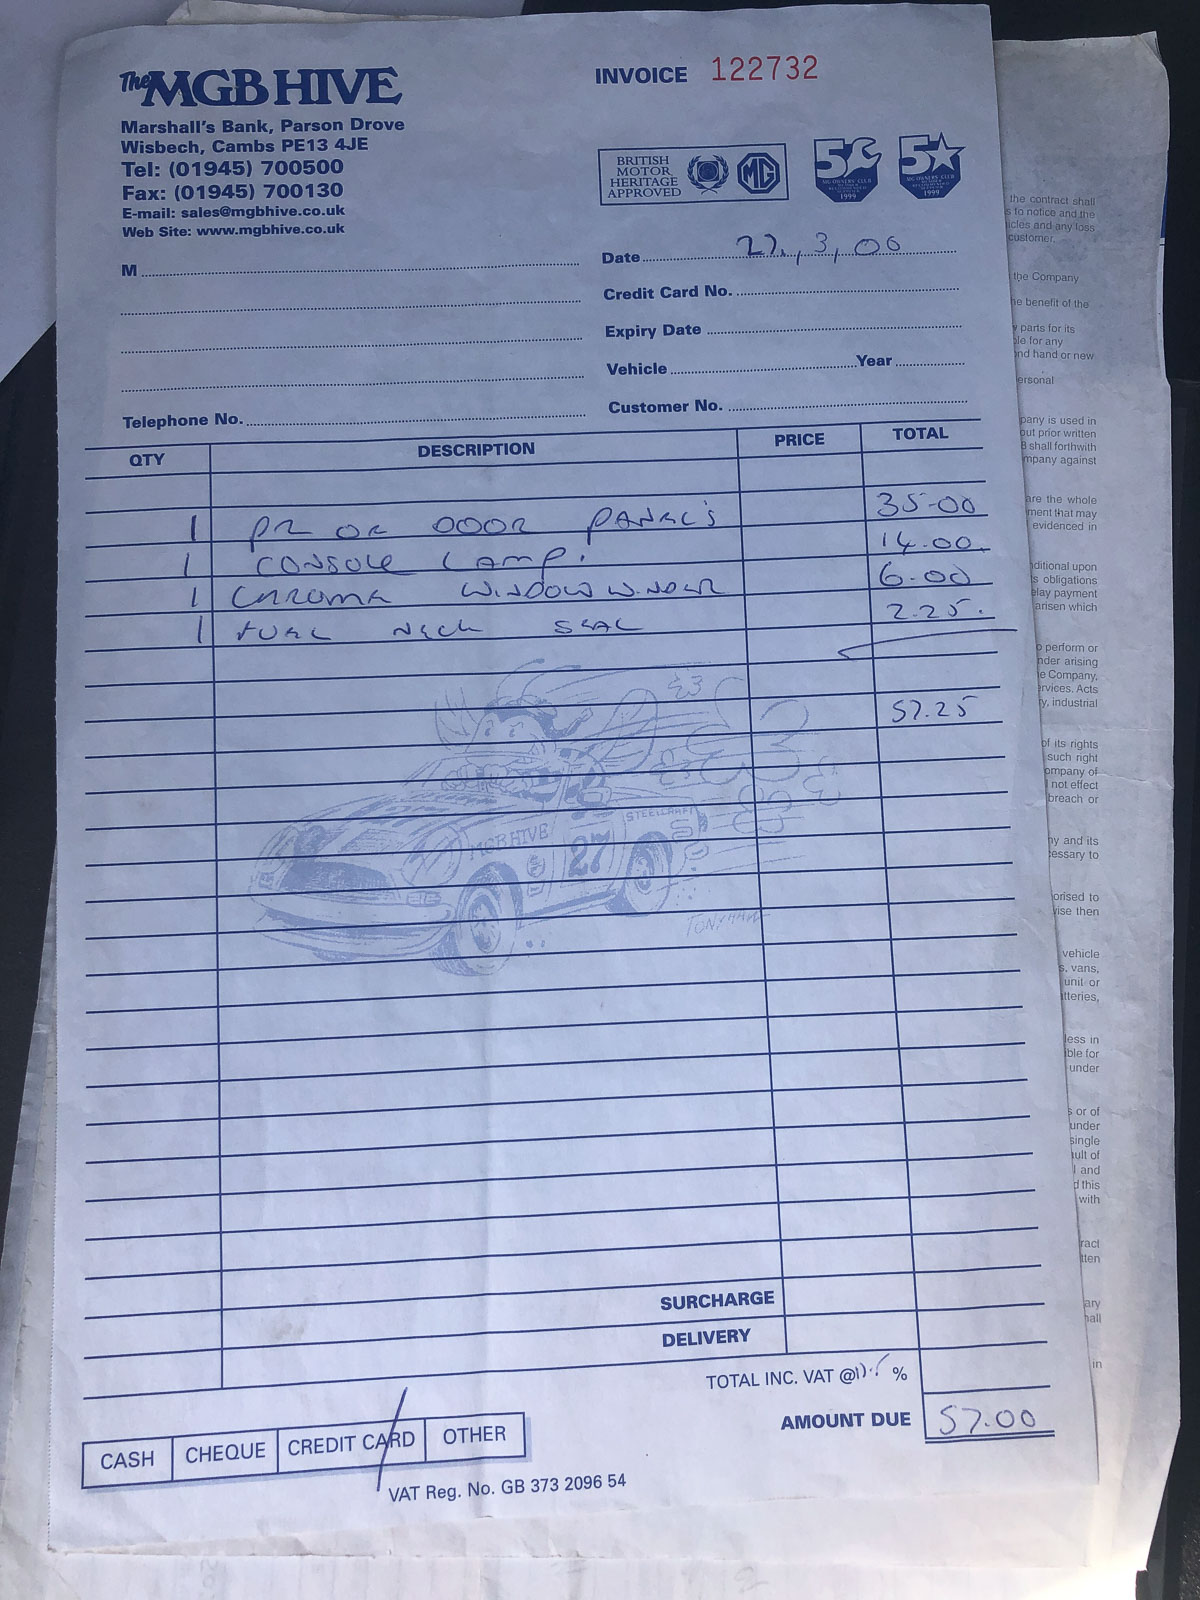 The MGB HIVE
Marshall's Bank, Parson Drove
Wisbech, Cambs PE13 4JE
Tel: (01945) 700500
Fax: (01945) 700130
E-mail: sales@mgbhive.co.uk
Web Site: www.mgbhive.co.uk
INVOICE 122732
BRITISH
MOTOR
HERITAGE
APPROVED
MG
MG OWNERS' CLUB
1999
5★
MG OWNERS' CLUB
1999
M
Telephone No.
Date 27, 3, 00
Credit Card No.
Expiry Date
Vehicle Year
Customer No.
QTY DESCRIPTION PRICE TOTAL
1 PR OF DOOR PANELS 35-00
1 CONSOLE LAMP. 14.00
1 CHROME WINDOW WINDER 6-00
1 FUEL NECK SEAL 2.25.
57.25
MGB HIVE
27
STEELCRAFT
SURCHARGE
DELIVERY
TOTAL INC. VAT @ %
AMOUNT DUE 57.00
CASH CHEQUE CREDIT CARD OTHER
VAT Reg. No. GB 373 2096 54
the contract shall
s to notice and the
icles and any loss
customer.
the Company
he benefit of the
parts for its
ble for any
ond hand or new
ersonal
pany is used in
out prior written
B shall forthwith
mpany against
are the whole
ment that may
evidenced in
nditional upon
s obligations
elay payment
arisen which
o perform or
nder arising
e Company,
ervices. Acts
y, industrial
of its rights
such right
ompany of
not effect
breach or
ny and its
cessary to
orised to
wise then
vehicle
s, vans,
unit or
tteries,
less in
ible for
under
s or of
under
single
ault of
l and
d this
with
ract
tten
ary
hall
in